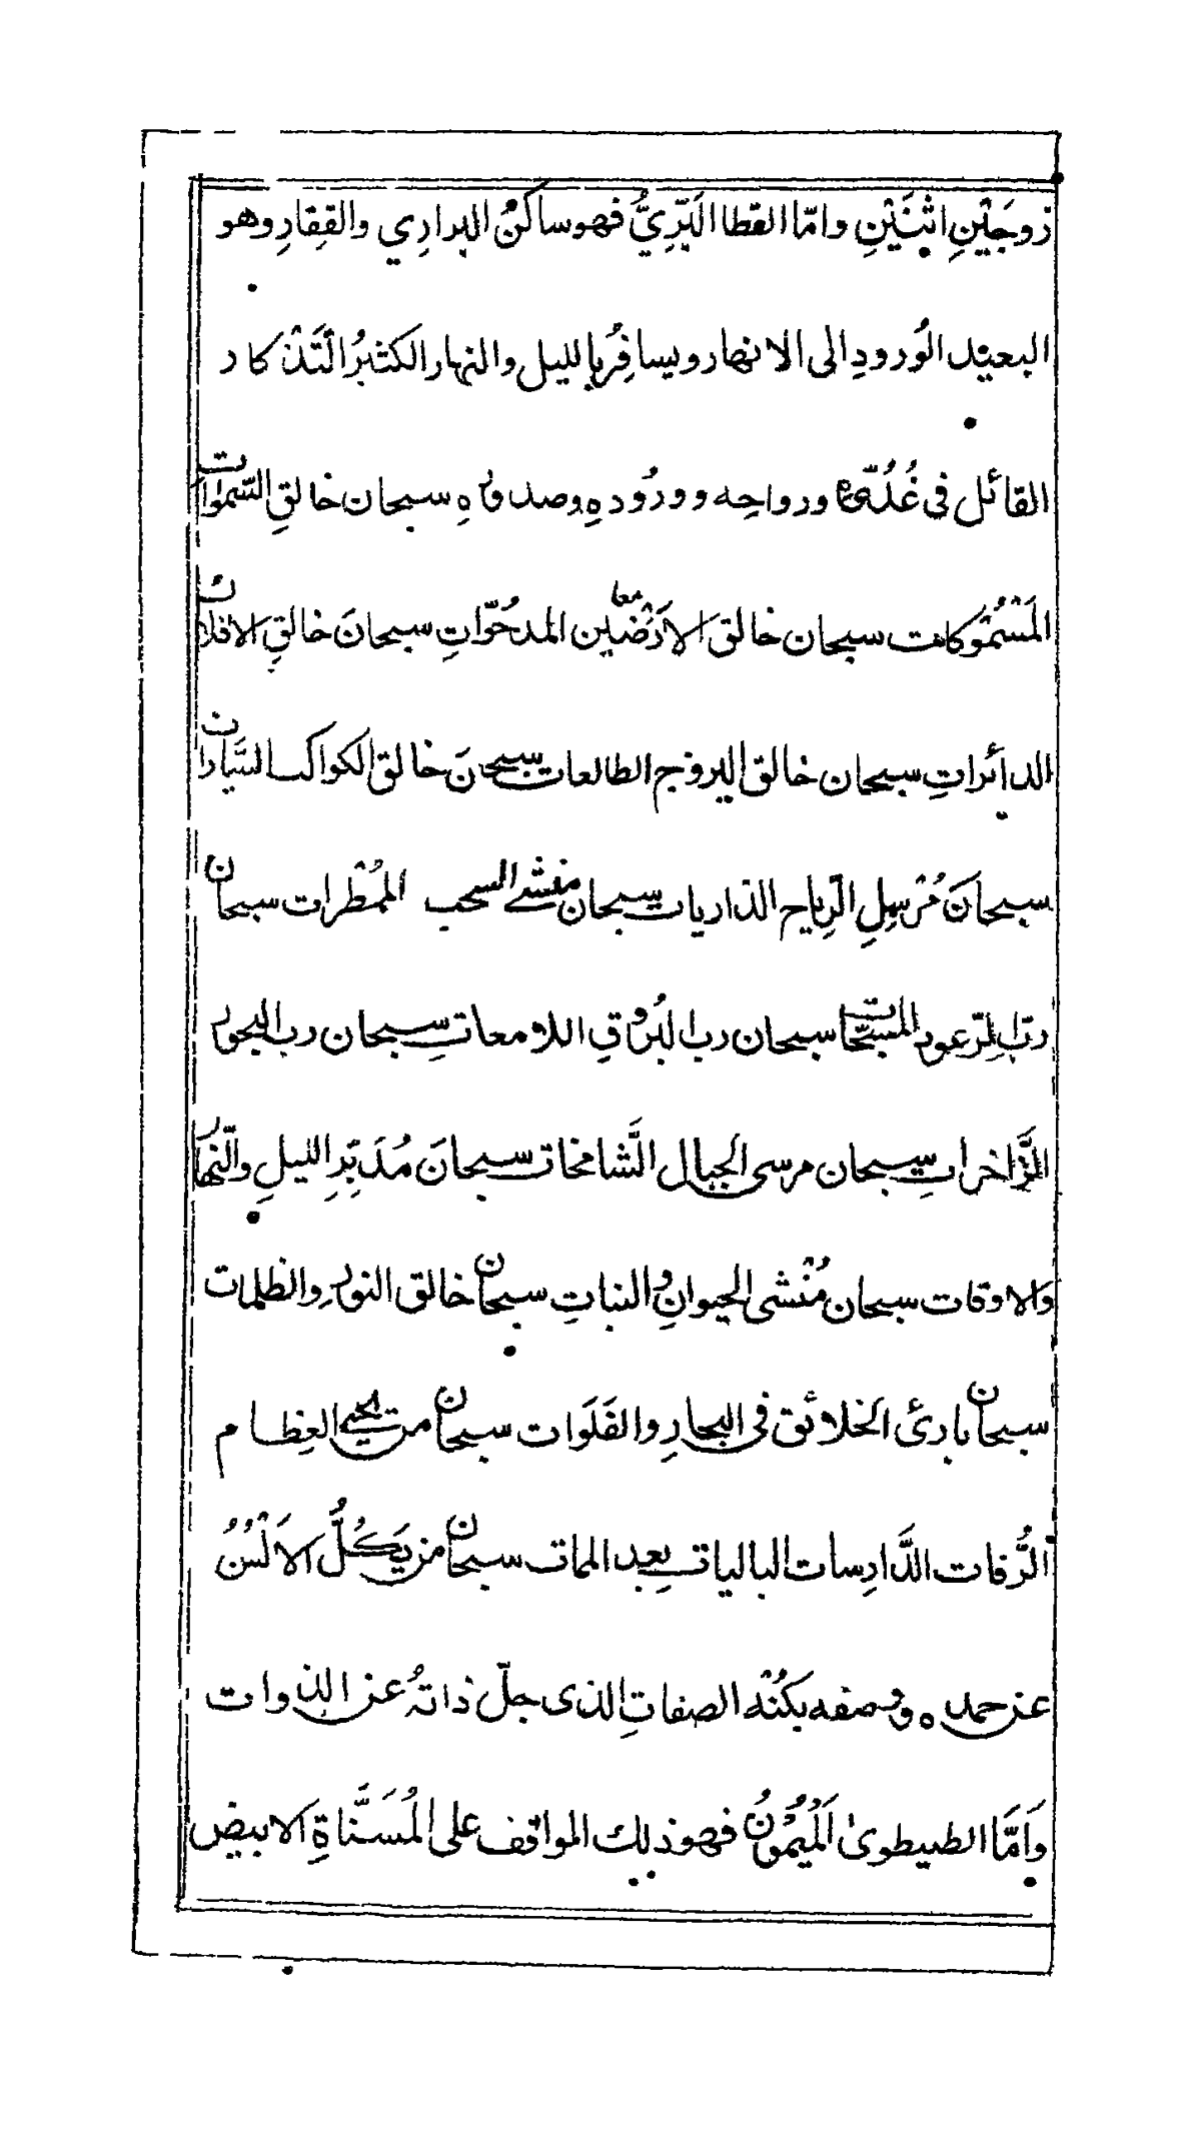 زوجَيْنِ اثْنَيْنِ وامّا القطا البَرِّيُّ فهو ساكنُ البراري والقِفارِ وهو
البعيْد الوُرودِ الى الانهار ويسافِرُ بالليل والنهار الكثيرُ التَّذْكار
القائل فى غُدُوِّه ورواحِه وورُودِه وصدورِه سبحان خالقِ السّموات
المَسْمُوكات سبحان خالق الارَضْين معا المدحُوّاتِ سبحانَ خالقِ الافلاك
الدائراتِ سبحان خالق البروج الطالعات سبحنَ خالق الكواكب السَيّارات
سبحانَ مُرْسِلِ الرّياح الذاريات سبحان منشئ السحب المُمْطرات سبحان
ربّ الرّعود المسبّحات سبحان رب البُرُوقِ اللامعات سبحان رب البحور
الزَّاخرات سبحان مرسى الجبال الشَّامخات سبحانَ مُدَبِّرِ الليلِ والنّهار
والاوقات سبحان مُنْشى الحيوانِ والنباتِ سبحان خالق النورِ والظلمات
سبحان بارئ الخلائق فى البحارِ والفَلَوات سبحان من يحيي العِظام
الرُّفات الدَّارِسات الباليات بعد الممات سبحان من يَكُلُّ الاَلْسُنُ
عن حمده ووصفه بكُنْه الصفاتِ الذى جلّ ذاتهُ عن الذوات
وَاَمَّا الطيطوىٰ اَلْمَيْمُوْنُ فهو ذلك المواقف على المُسَنَّاةِ الابيض